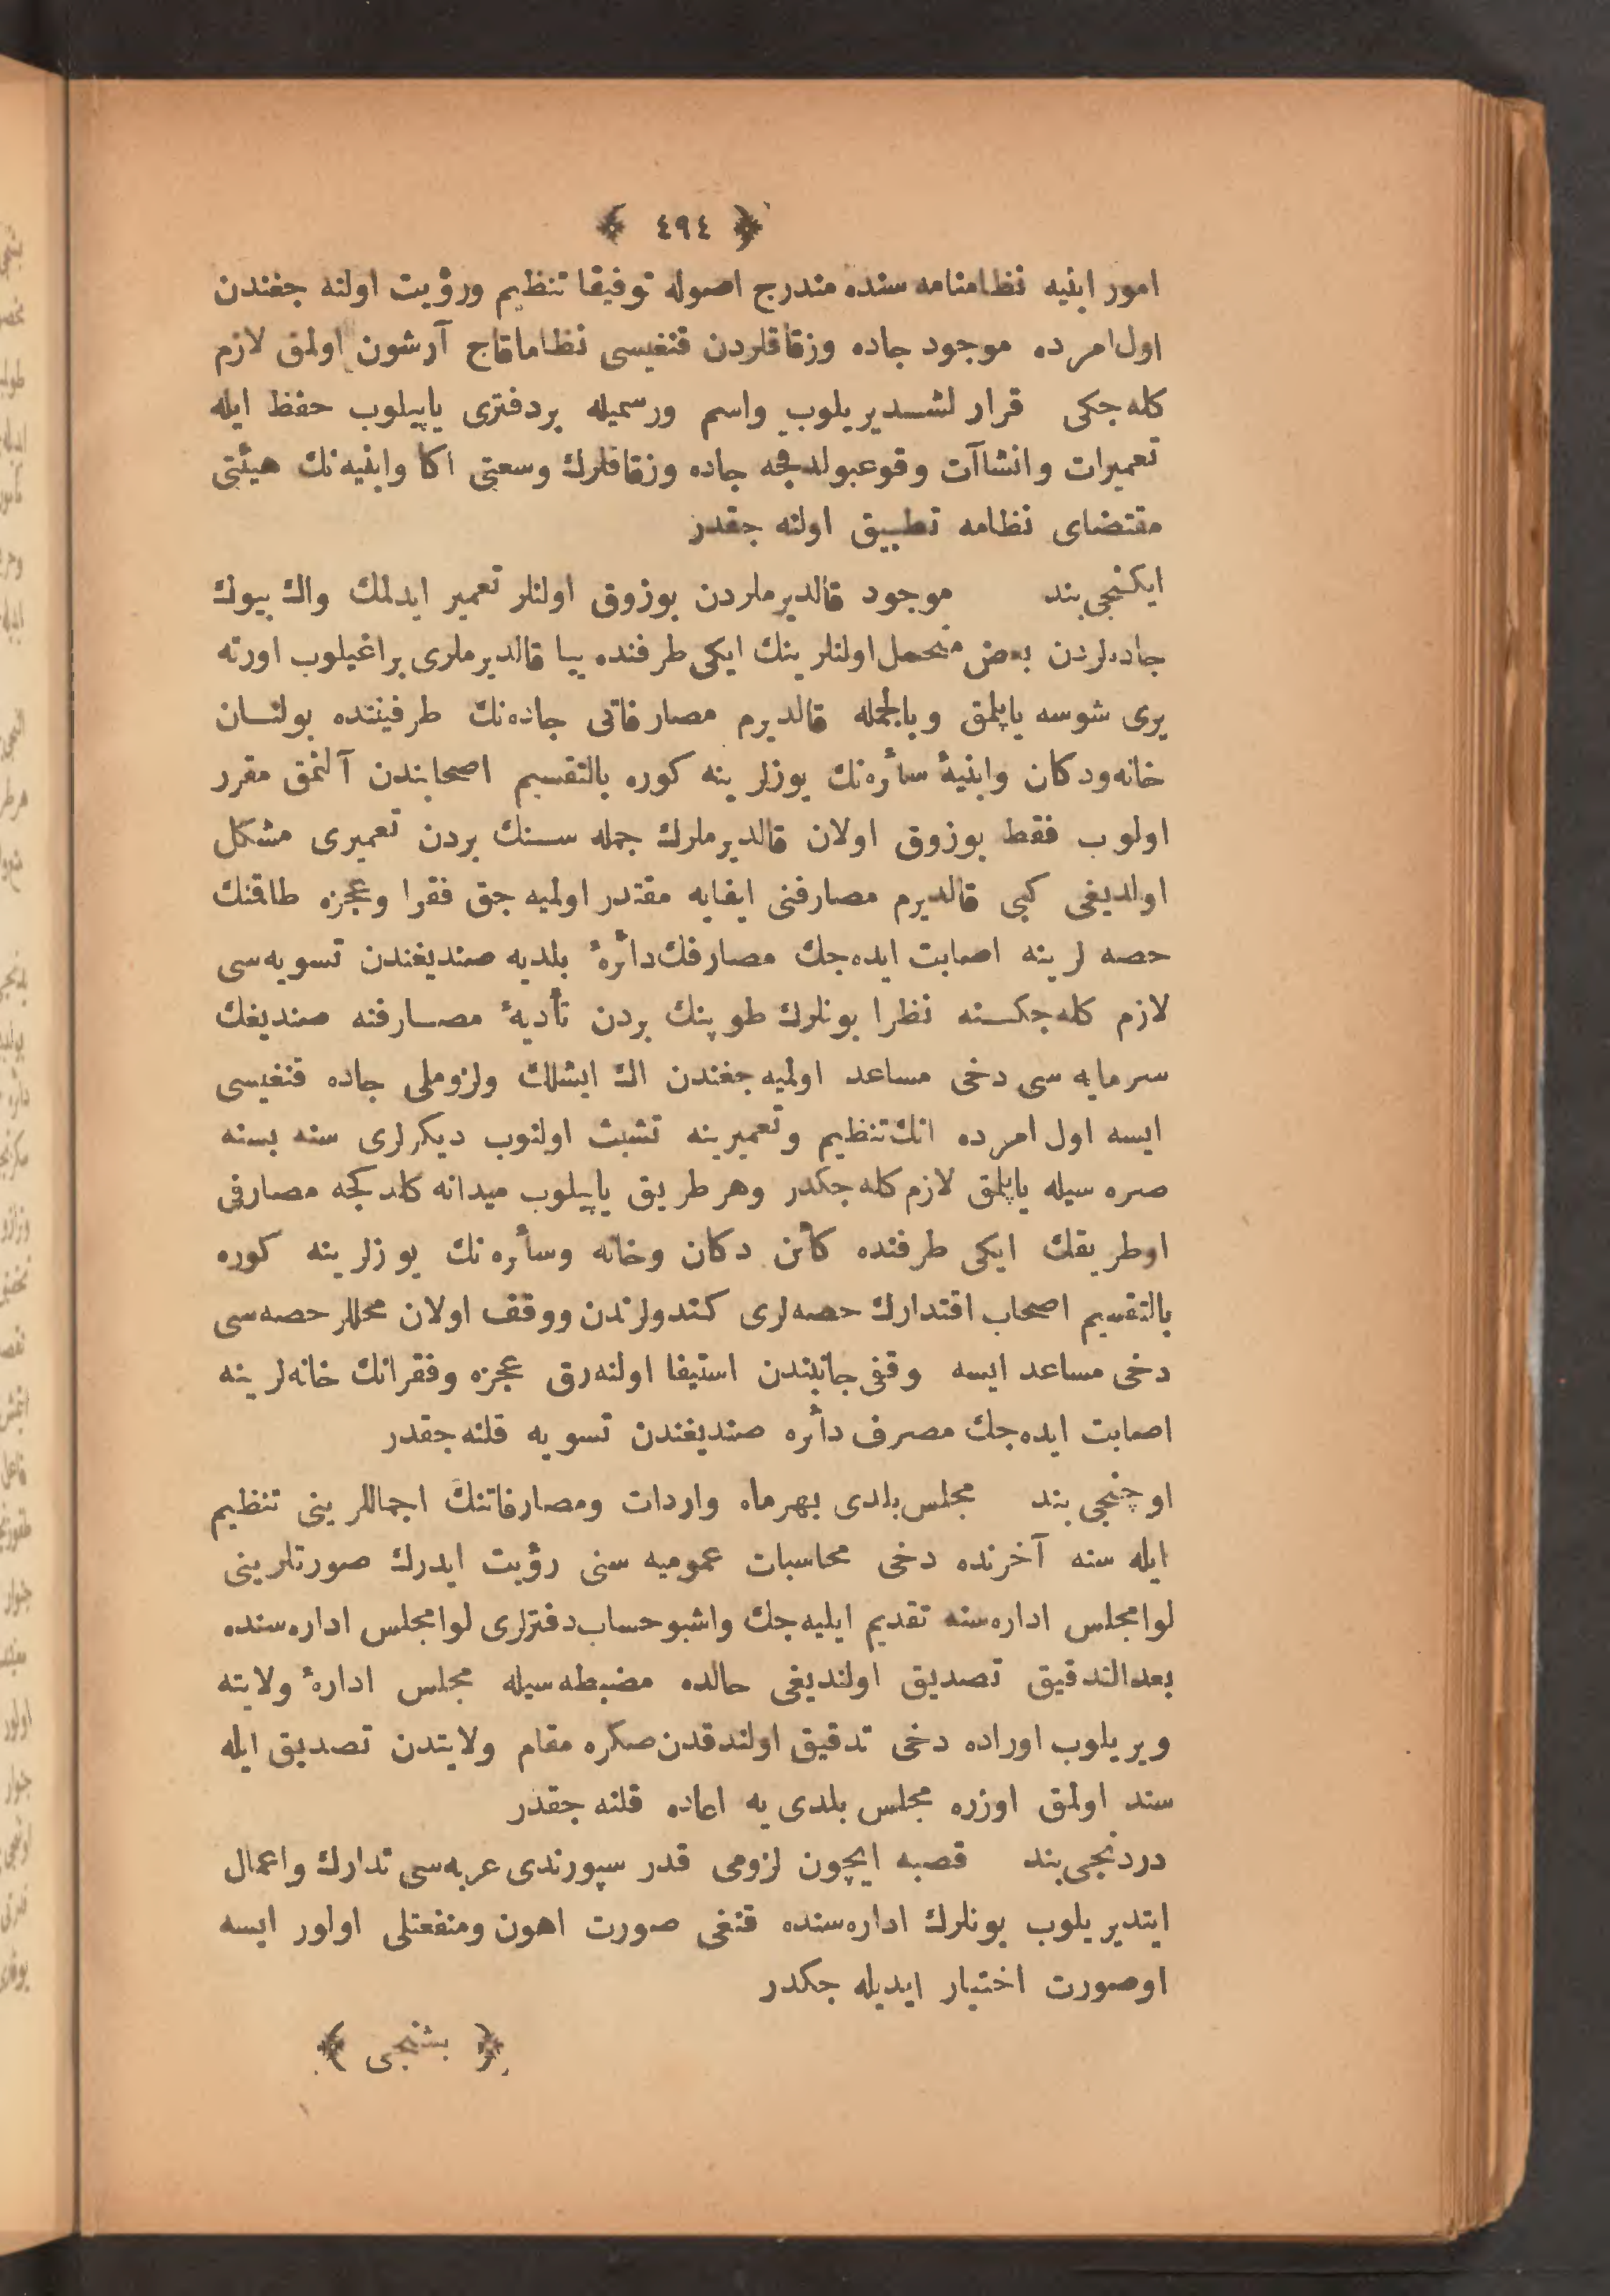 ﴿ ٤٩٤ ﴾
امور ابنیه نظامنامه سنده مندرج اصوله توفیقا تنظیم ورؤیت اولنه جغندن
اول‌امرده موجود جاده وزقاقلردن قنغیسی نظاماقاج آرشون اولمق لازم
كله‌جكی قرار لشدیریلوب واسم ورسمیله بردفتری یاپیلوب حفظ ایله
تعمیرات وانشاآت وقوعبولدقجه جاده وزقاقلرك وسعتی اكا وابنیه‌نك هیئتی
مقتضای نظامه تطبیق اولنه جقدر
ایكنجی‌بند موجود قالدیرملردن بوزوق اولنلر تعمیر ایدلمك والك بیوك
جاده‌لردن بعض متحمل اولنلرینك ایكی طرفنده پیا قالدیرملری براغیلوب اورته
یری شوسه یاپلمق وبالجمله قالدیرم مصارفاتی جاده‌نك طرفیننده بولنان
خانه‌ودكان وابنیۀ سأره‌نك یوزلرینه كوره بالتقسیم اصحابندن آلنمق مقرر
اولوب فقط بوزوق اولان قالدیرملرك جمله سنك بردن تعمیری مشكل
اولدیغی كبی قالدیرم مصارفنی ایفایه مقتدر اولمیه جق فقرا وعجزه طاقنك
حصه لرینه اصابت ایده‌جك مصارفك‌دائرۀ بلدیه صندیغندن تسویه‌سی
لازم كله‌جكنه نظرا بونلرك طوپنك بردن تأدیۀ مصارفنه صندیغك
سرمایه سی دخی مساعد اولمیه‌جغندن الك ایشلك ولزوملی جاده قنغیسی
ایسه اول امرده انك‌تنظیم وتعمیرینه تشبث اولنوب دیكرلری سنه بسنه
صره سیله یاپلمق لازم كله‌جكدر وهر طریق یاپیلوب میدانه كلدكجه مصارفی
اوطریقك ایكی طرفنده كائن دكان وخانه وسأره‌نك یوزلرینه كوره
بالتقسیم اصحاب اقتدارك حصه‌لری كندولرندن ووقف اولان محللر حصه‌سی
دخی مساعد ایسه وقفی جانبندن استیفا اولنه‌رق عجزه وفقرانك خانه‌لرینه
اصابت ایده‌جك مصرف دائره صندیغندن تسویه قلنه‌جقدر
اوچنجی‌بند مجلس‌بلدی بهرماه واردات ومصارفاتنك اجماللرینی تنظیم
ایله سنه آخرنده دخی محاسبات عمومیه سنی رؤیت ایدرك صورتلرینی
لوامجلس اداره‌سنه تقدیم ایلیه‌جك واشبوحساب‌دفترلری لوامجلس اداره‌سنده
بعدالتدقیق تصدیق اولندیغی حالده مضبطه‌سیله مجلس ادارۀ ولایته
ویریلوب اوراده دخی تدقیق اولندقدن‌صكره مقام ولایتدن تصدیق ایله
سند اولمق اوزره مجلس بلدی یه اعاده قلنه جقدر
دردنجی‌بند قصبه ایچون لزومی قدر سپورندی عربه‌سی تدارك واعمال
ایتدیریلوب بونلرك اداره‌سنده قنغی صورت اهون ومنفعتلی اولور ایسه
اوصورت اختیار ایدیله جكدر
﴿ بشنجی ﴾